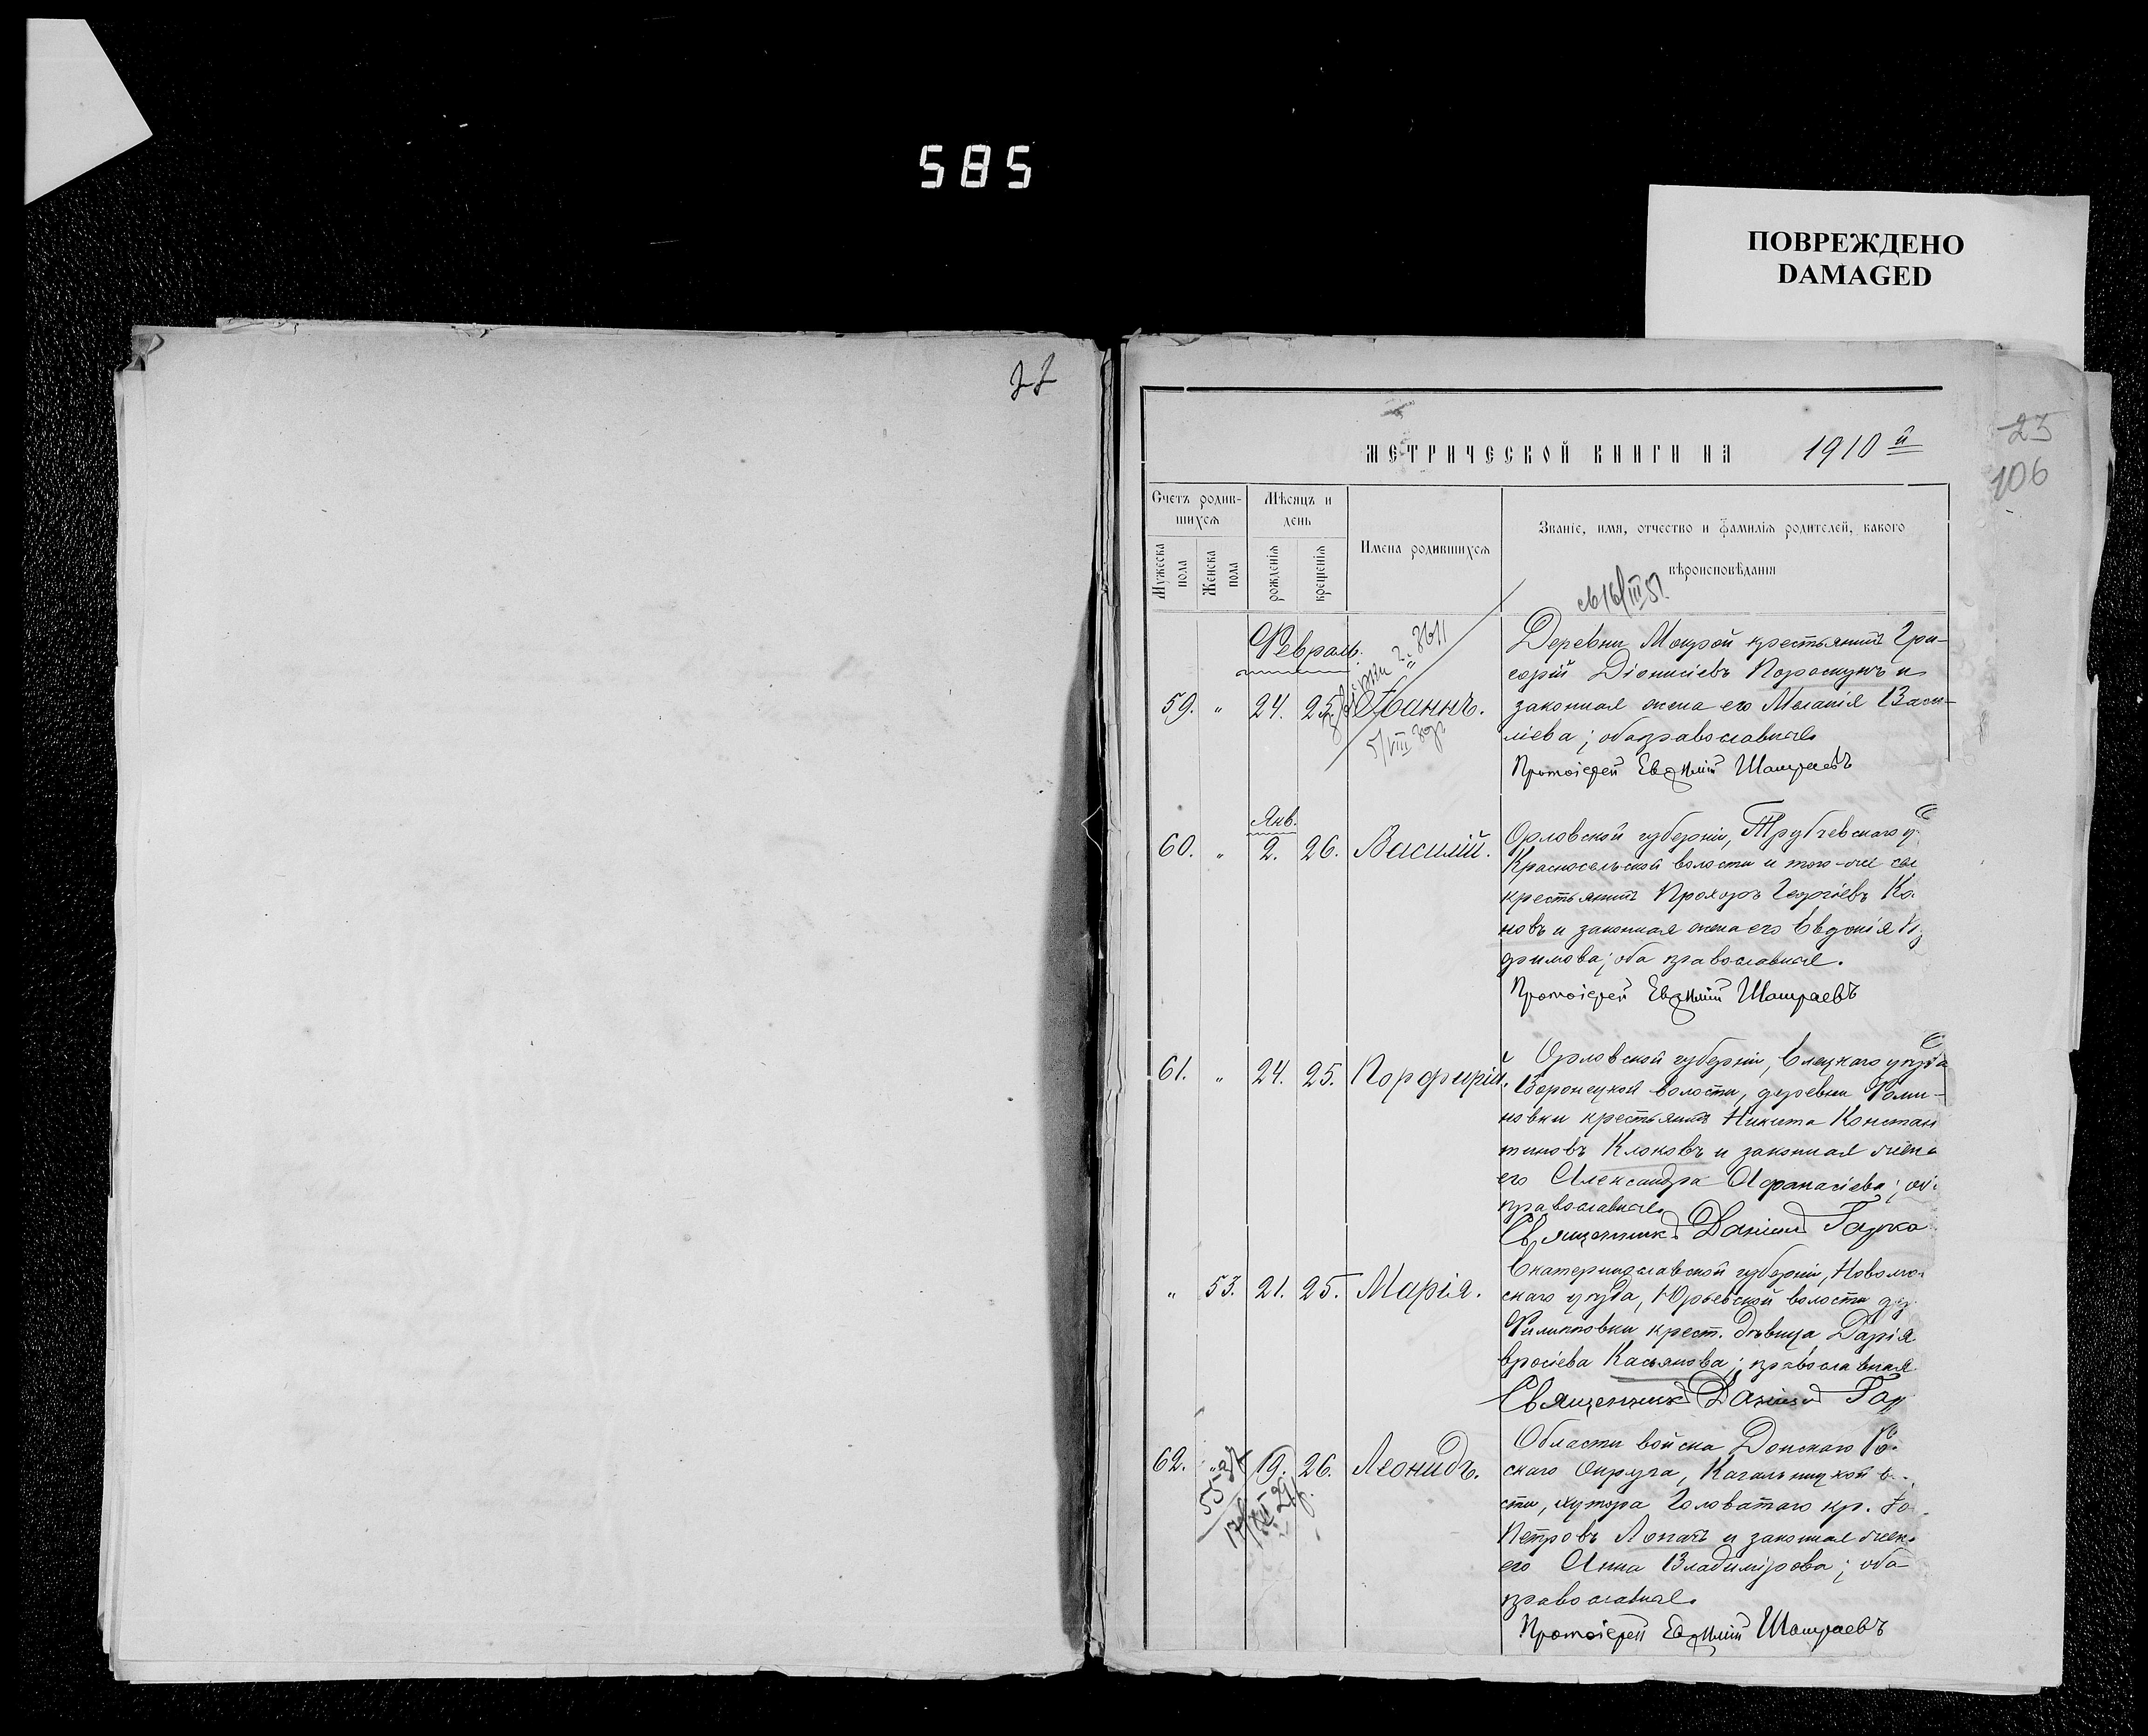 585
ПОВРЕЖДЕНО
DAMAGED
23
106
МЕТРИЧЕСКОЙ КНИГИ НА 1910й
Счетъ родившихся
Мѣсяцъ и день
Имена родившихся
Званіе, имя, отчество и фамилія родителей, какого вѣроисповѣданія
Мужеска пола
Женска пола
рожденія
крещенія
Февраль.
59. " 24. 25. Іоаннъ.
Деревни Мокрой крестьянинъ Гри-
горій Діонисіевъ и
законная жена его Меланія Васи-
ліева; оба православные
Протоіерей Евѳимій
Янв.
60. " 2. 26. Василій.
Орловской губерніи, Трубчевскаго у.
Красносельской волости и того-же
крестьянинъ Прохоръ Георгіевъ Ко
новъ и законная жена его Евдокія
фимова; оба православные.
Протоіерей Евѳимій
61. " 24. 25. Порфирій.
Орловской губерніи, Елецкаго уѣзда
Воронецкой волости, деревни Фоми-
новки крестьянинъ Никита Констан
тиновъ Клоковъ и законная жена
его Александра Афанасіева;
православные
Священникъ Даніилъ
" 53. 21. 25. Марія.
Екатеринославской губерніи, Новомо
скаго уѣзда, Юрьевской волости дер
Филипповки крест. дѣвица Дарія
вросіева Касьянова; православная
Священникъ Даніилъ
62. " 19. 26. Леонидъ.
Области войска Донскаго
скаго Округа, Кагальницкой в
сти, хутора Головатаго кр.
Петровъ и законная жена
его Анна Владимірова; оба
православные
Протоіерей Евѳимій